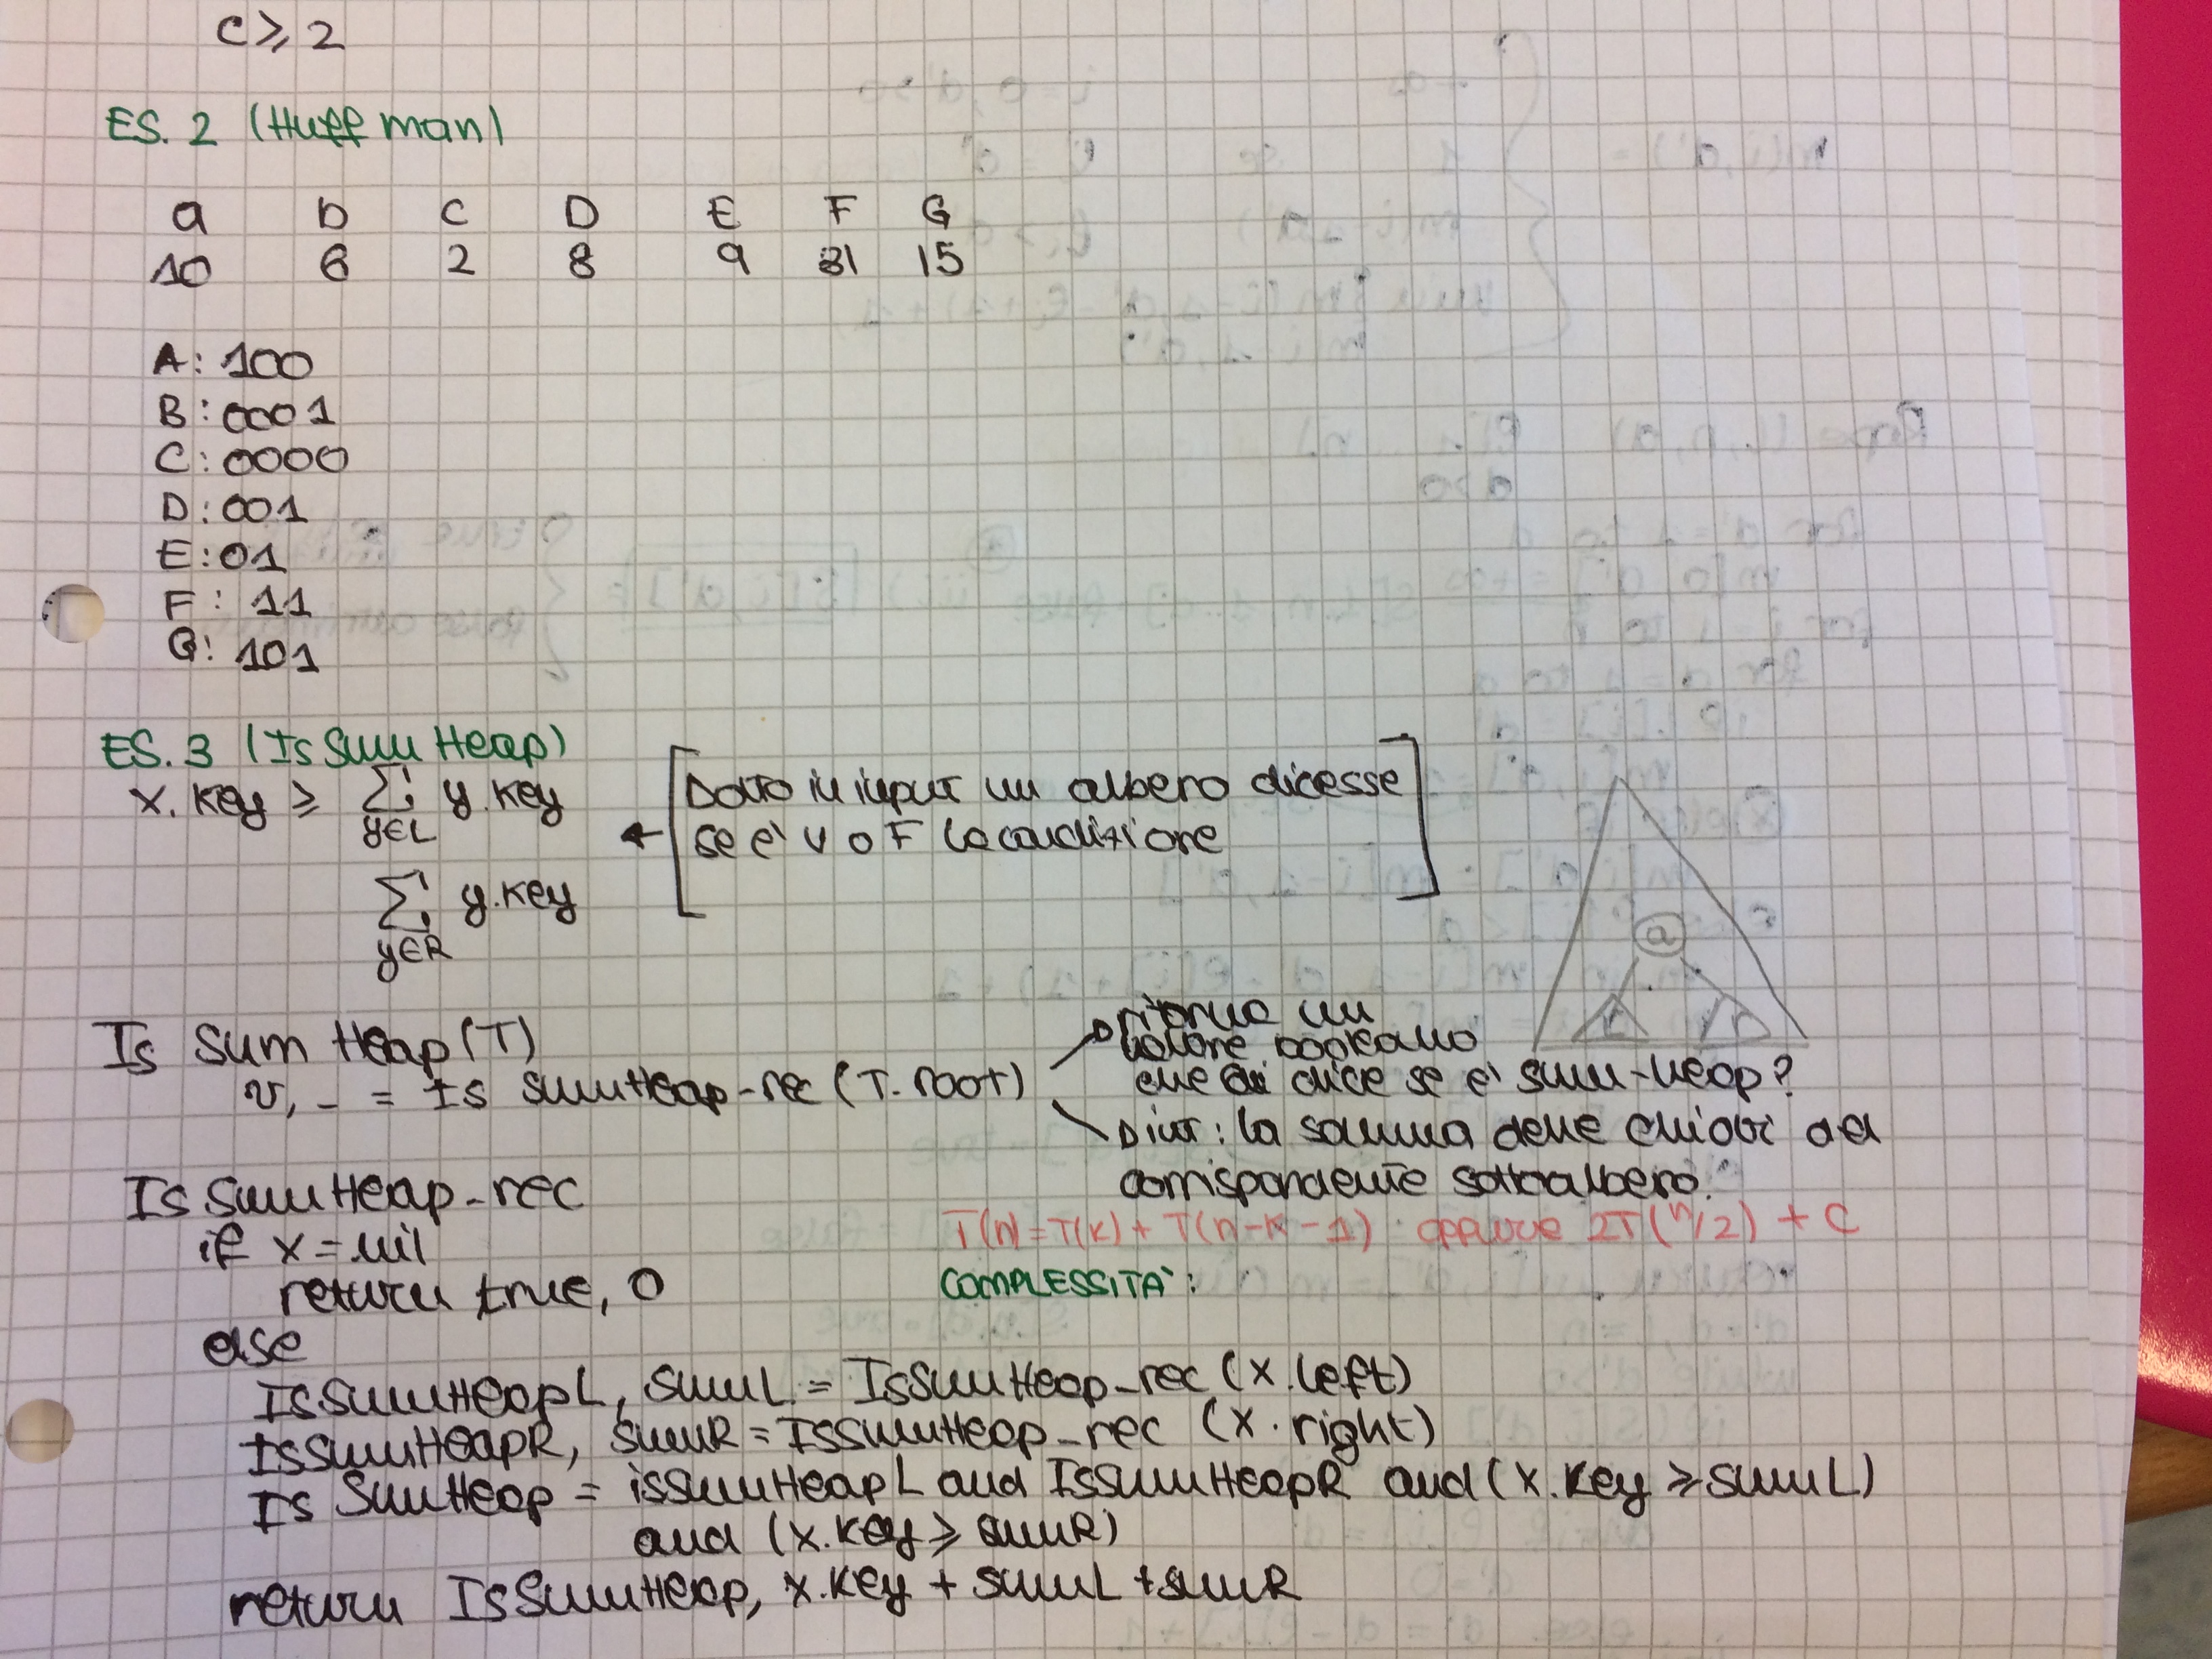 C ≥ 2
ES. 2 (Huffman)
a b C D E F G
10 6 2 8 9 21 15
A: 100
B: 0001
C: 0000
D: 001
E: 01
F: 11
G: 101
ES. 3 (IsSumHeap)
x.key ≥ Σ y.key
y∈L
Σ y.key
y∈R
[Dato in input un albero dicesse
se e' V o F la condizione]
Is Sum Heap (T)
v, - = Is SumHeap-rec (T.root)
ritorna un
valore booleano
che ci dice se e' sum-heap?
int: la somma delle chiavi del
corrispondente sottoalbero.
IsSumHeap-rec
if x = nil
return true, 0
else
IsSumHeapL, sumL = IsSumHeap-rec (x.left)
IsSumHeapR, sumR = IsSumHeap-rec (x.right)
Is SumHeap = isSumHeapL and IsSumHeapR and (x.key ≥ sumL)
and (x.key ≥ sumR)
return IsSumHeap, x.key + sumL + sumR
T(n) = T(k) + T(n-k-1) oppure 2T(n/2) + C
COMPLESSITÀ: